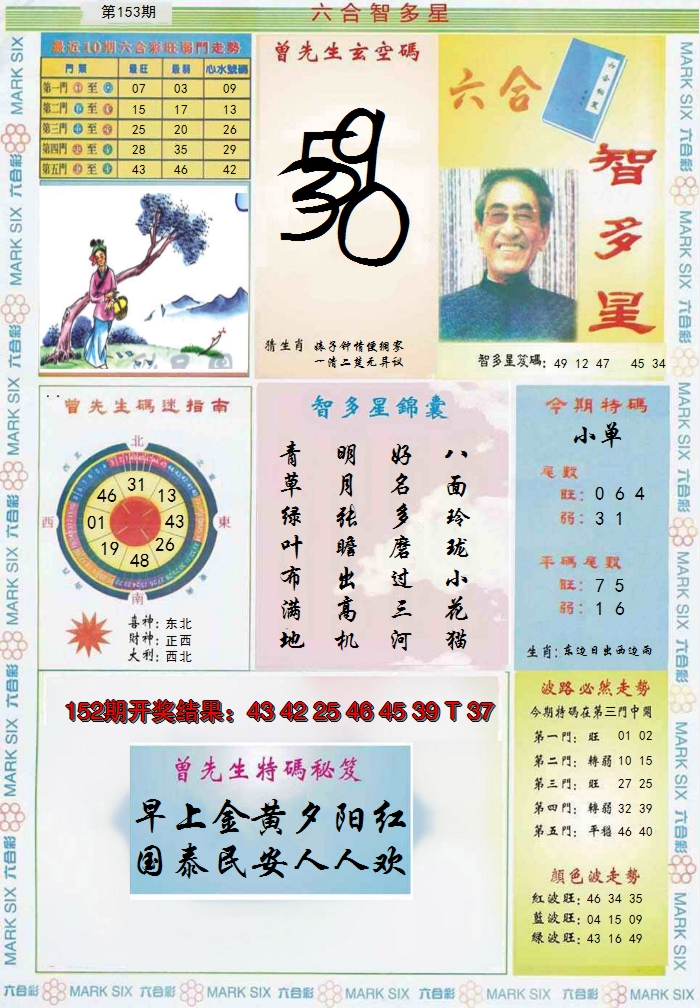 第153期
六合智多星
最近10期六合彩旺弱門走勢
門類 最旺 最弱 心水號碼
第一門 至 07 03 09
第二門 至 15 17 13
第三門 至 25 20 26
第四門 至 28 35 29
第五門 至 43 46 42
曾先生玄空碼
猜生肖 妹子钟情侵绸零
一清二楚无异议
六合
智多星
智多星笈碼: 49 12 47 45 34
曾先生碼迷指南
北
西
東
南
31
13
43
26
48
19
01
46
喜神: 东北
財神: 正西
大利: 西北
智多星錦囊
八面玲珑小花猫
好名多磨过三河
明月张瞻出高机
青草绿叶布满地
今期特碼
小单
尾數
旺: 0 6 4
弱: 3 1
平碼尾數
旺: 7 5
弱: 1 6
生肖: 东边日出西边雨
152期开奖结果: 43 42 25 46 45 39 T 37
曾先生特碼秘笈
早上金黄夕阳红
国泰民安人人欢
波路必然走勢
今期特碼在第三門中開
第一門: 旺 01 02
第二門: 轉弱 10 15
第三門: 旺 27 25
第四門: 轉弱 32 39
第五門: 平穩 46 40
顏色波走勢
紅波旺: 46 34 35
藍波旺: 04 15 09
綠波旺: 43 16 49
MARK SIX 六合彩 MARK SIX 六合彩 MARK SIX 六合彩 MARK SIX 六合彩 MARK SIX 六合彩